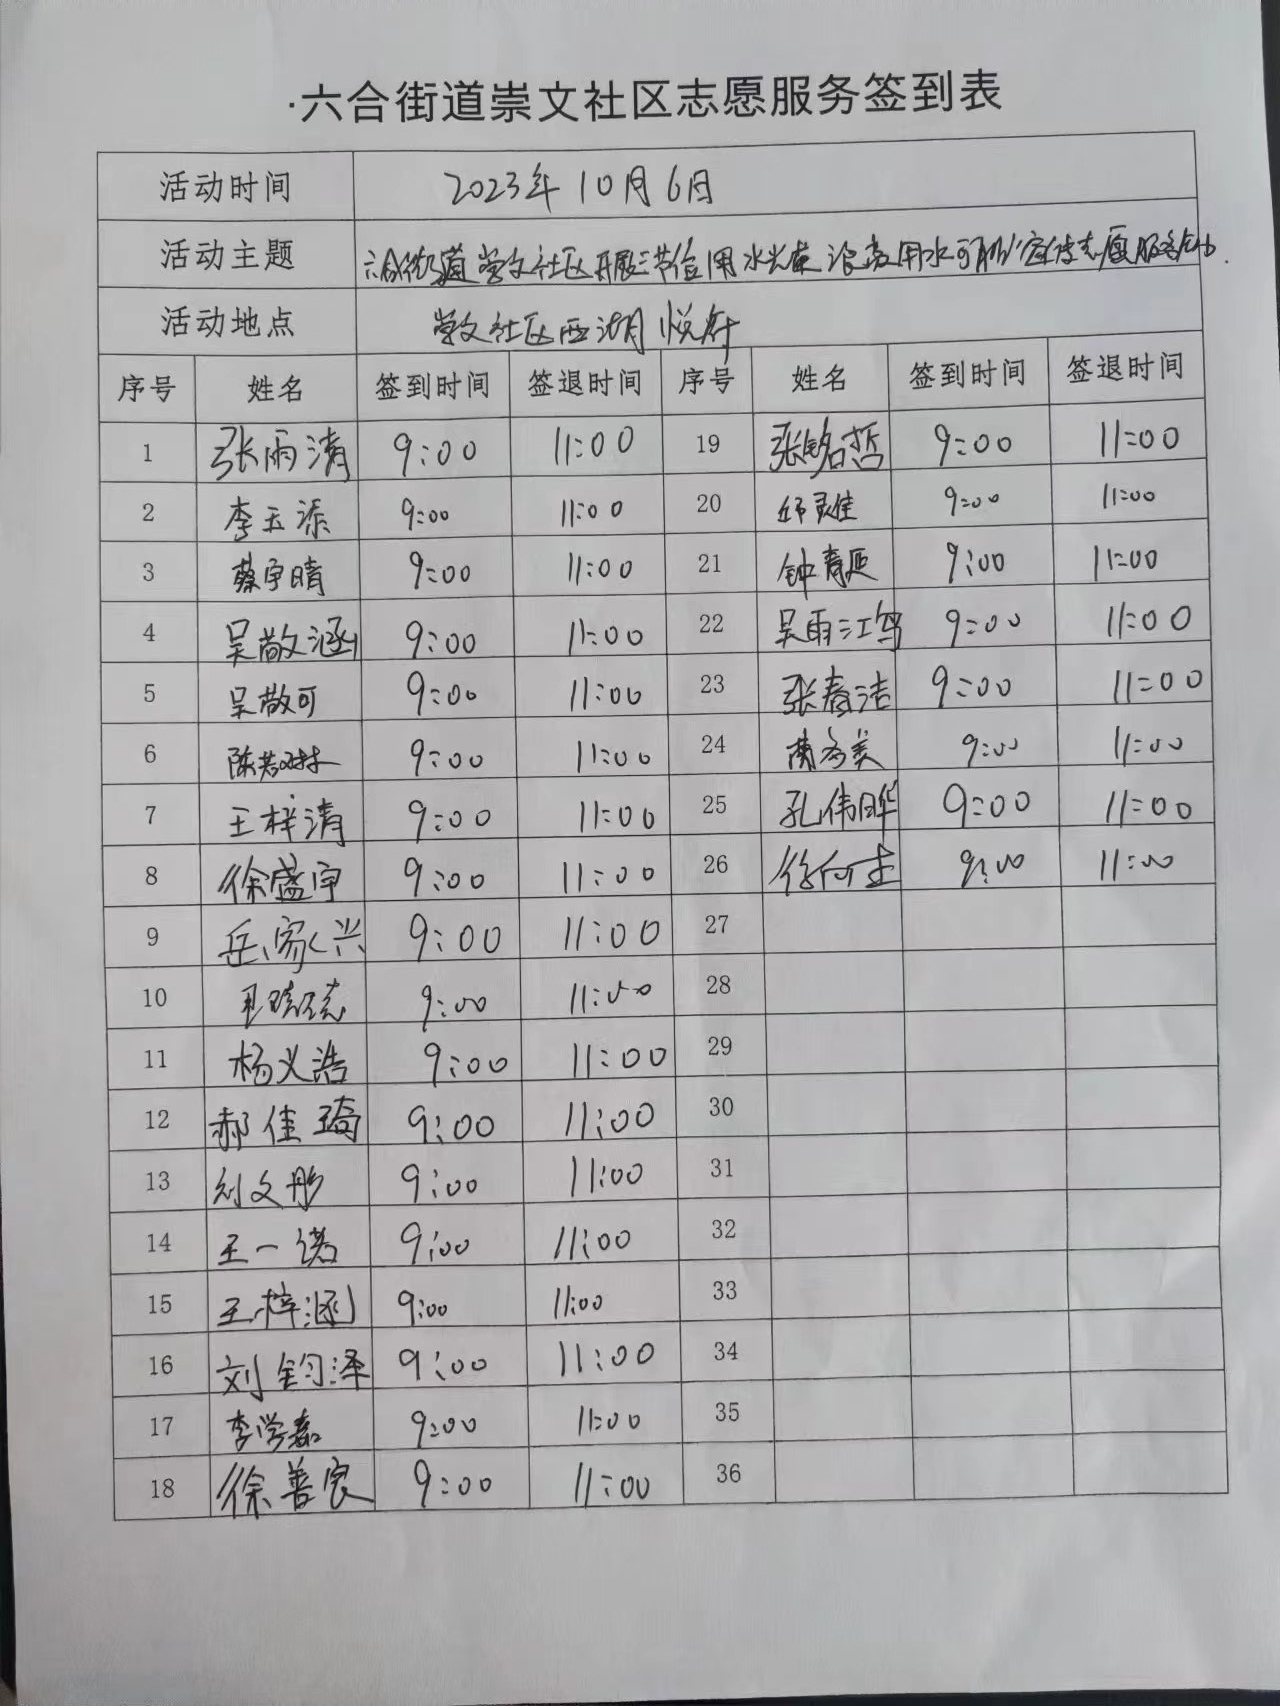 ·六合街道崇文社区志愿服务签到表
活动时间 2023年10月6日
活动主题 六合街道崇文社区开展三节信用水光荣 浪费用水可耻宣传志愿服务活动.
活动地点 崇文社区西湖悦府
序号 姓名 签到时间 签退时间 序号 姓名 签到时间 签退时间
1 张雨清 9:00 11:00 19 张铭哲 9:00 11:00
2 李玉添 9:00 11:00 20 邱灵佳 9:00 11:00
3 蔡宇晴 9:00 11:00 21 钟青延 9:00 11:00
4 吴散涵 9:00 11:00 22 吴雨江 9:00 11:00
5 吴散可 9:00 11:00 23 张春洁 9:00 11:00
6 陈若琳 9:00 11:00 24 9:00 11:00
7 王梓清 9:00 11:00 25 孔伟晔 9:00 11:00
8 徐盛宇 9:00 11:00 26 9:00 11:00
9 岳家兴 9:00 11:00 27
10 9:00 11:00 28
11 杨义浩 9:00 11:00 29
12 郝佳琦 9:00 11:00 30
13 刘文彤 9:00 11:00 31
14 王一诺 9:00 11:00 32
15 王梓涵 9:00 11:00 33
16 刘钧泽 9:00 11:00 34
17 李学嘉 9:00 11:00 35
18 徐善良 9:00 11:00 36